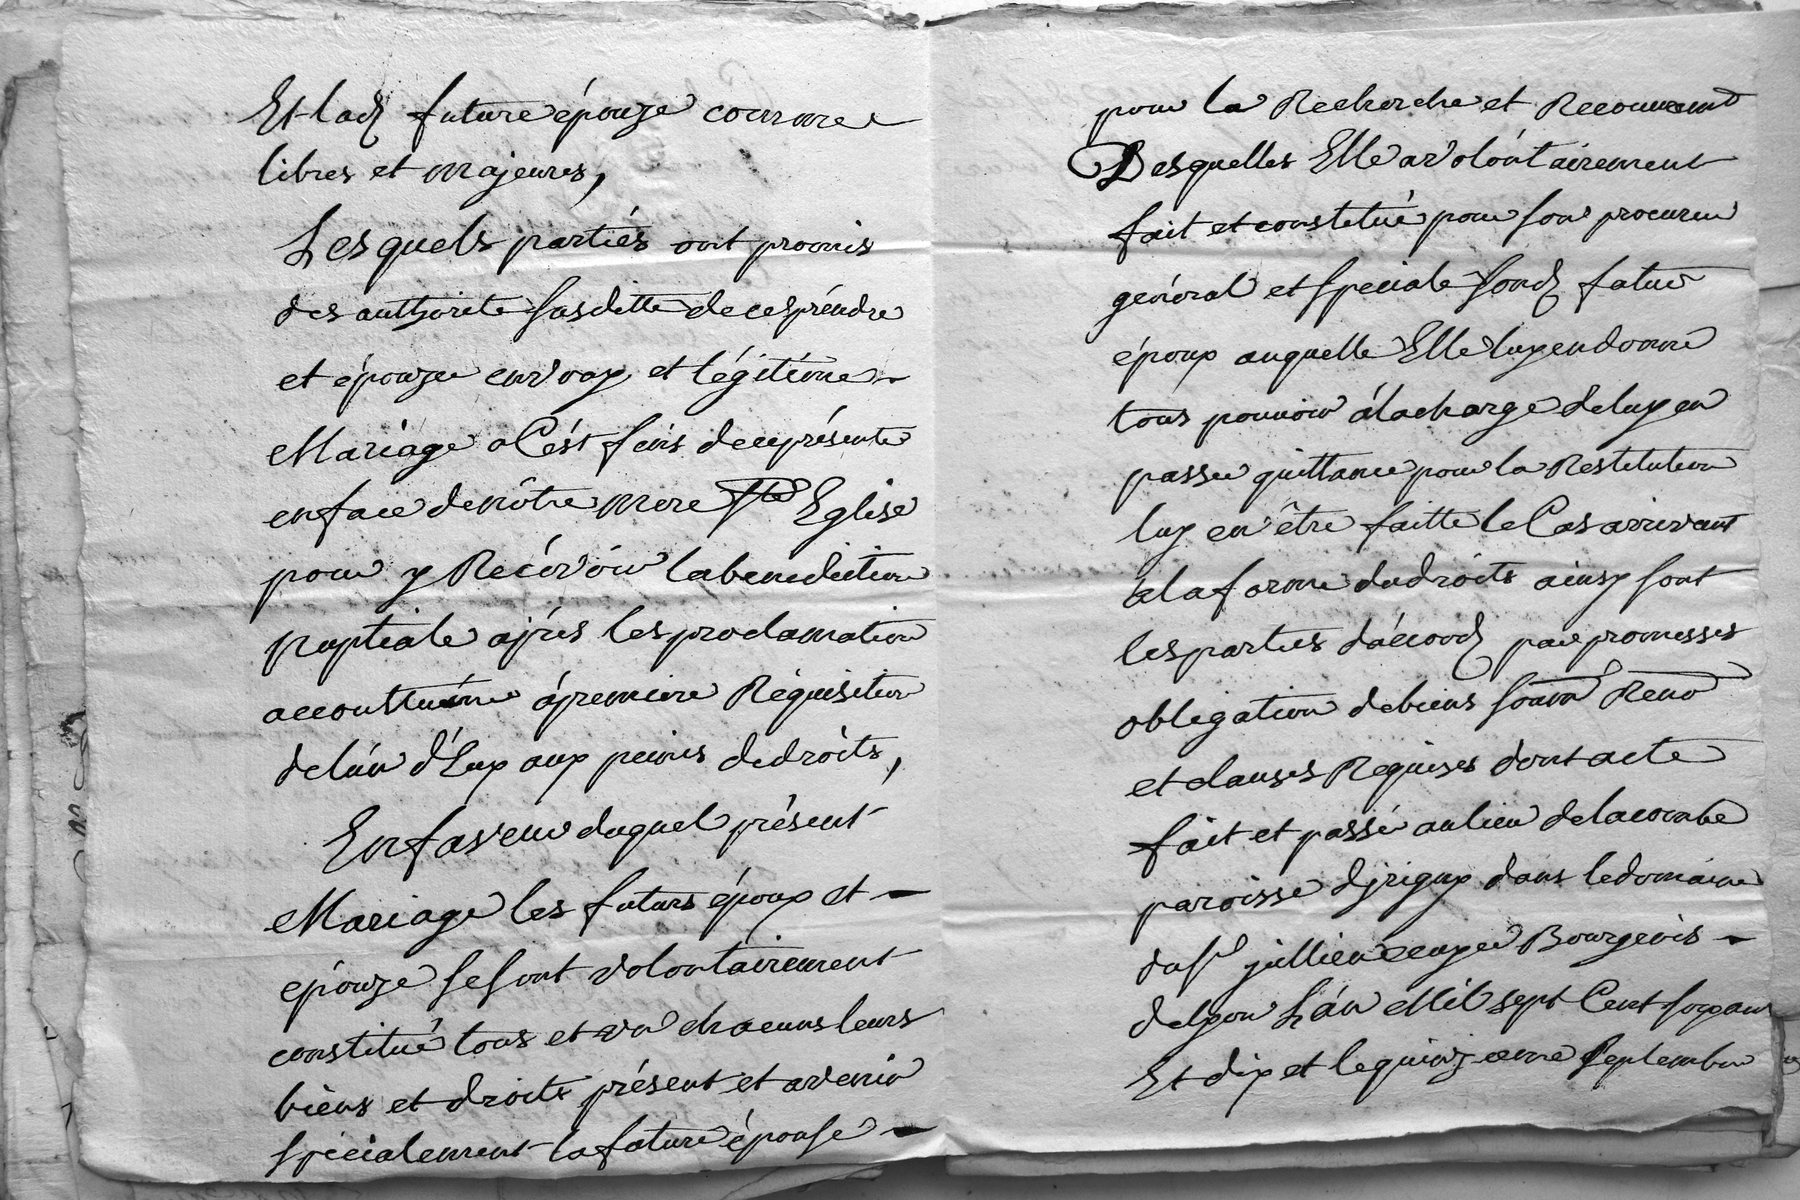 Et lad future épouze comme
libres et majeures,
Lesquels partiés ont promis
des authorité susditte de cespréndre
et épouzer envray et légitime
Mariage a Cést fins deceprésenter
enface denôtre mere Ste Eglise
pour y Recévoir labenediction
nuptiale aprés les proclamation
accoustumé ápremiere Réquisition
delún d'Eux aux peines dedroits,
Enfaveur duquel présent
Mariage les futurs époux et
épouze sesont volontairement
constitué tous et un chacuns leurs
biens et droits présent et avenir
spécialement la future épouse
pour la Recherche et Recouvrement
Desquelles Elle a volóntairement
fait et constitué pour son procureur
genéral et speciale sond futur
époux auquelle Elle luy endonne
tous pouvoir álacharge deluy en
passer quittance pour la Restitution
luy en être faitte le Cas arrivant
alaforme dudroits ainsy sont
lesparties dáccord par promesses
obligation debiens soum Reno
et clauses Requises dont acte
fait et passé aulieu delacombe
paroisse dans ledomaine
du sr jullien Bourgeois
delyon L'án Mil sept Cent soixante
Et dix et lequinzieme septembre